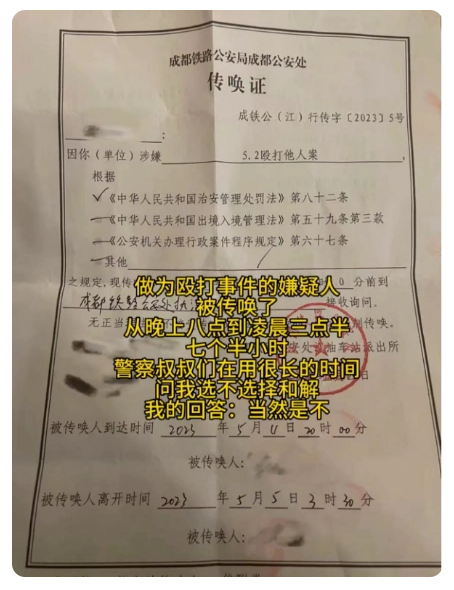 成都铁路公安局成都公安处
传唤证
成铁公（江）行传字〔2023〕5号
：
因你（单位）涉嫌 5.2殴打他人案，
根据
✓《中华人民共和国治安管理处罚法》第八十二条
《中华人民共和国出境入境管理法》第五十九条第三款
《公安机关办理行政案件程序规定》第六十七条
其他
做为殴打事件的嫌疑人
之规定，现传 0分前到
被传唤了
接收询问。
无正当
从晚上八点到凌晨三点半
制传唤。
七个半小时
油车站派出所
警察叔叔们在用很长的时间
问我选不选择和解
我的回答：当然是不
被传唤人到达时间 2023年5月4日20时00分
被传唤人：
被传唤人离开时间 2023年5月5日3时30分
被传唤人：